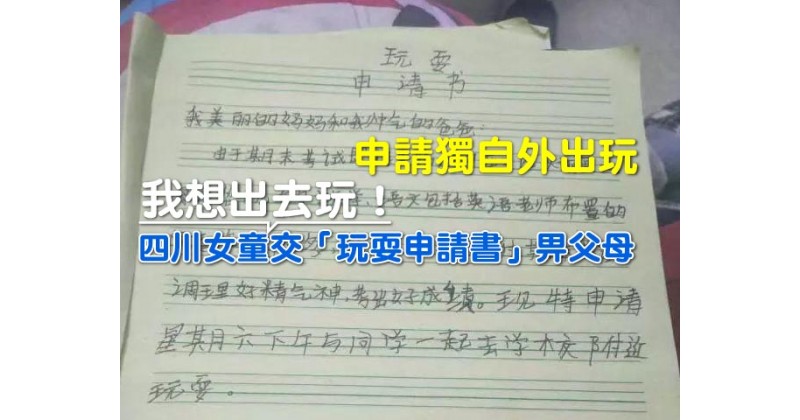 玩耍
申请书
我美丽的妈妈和我帅气的爸爸:
由于期末考试
申請獨自外出玩
我想出去玩!
语文包括英语老师布置的
四川女童交「玩耍申請書」畀父母
调理好精气神,考出好成绩。现特申请
星期六下午与同学一起去学校附近
玩耍。